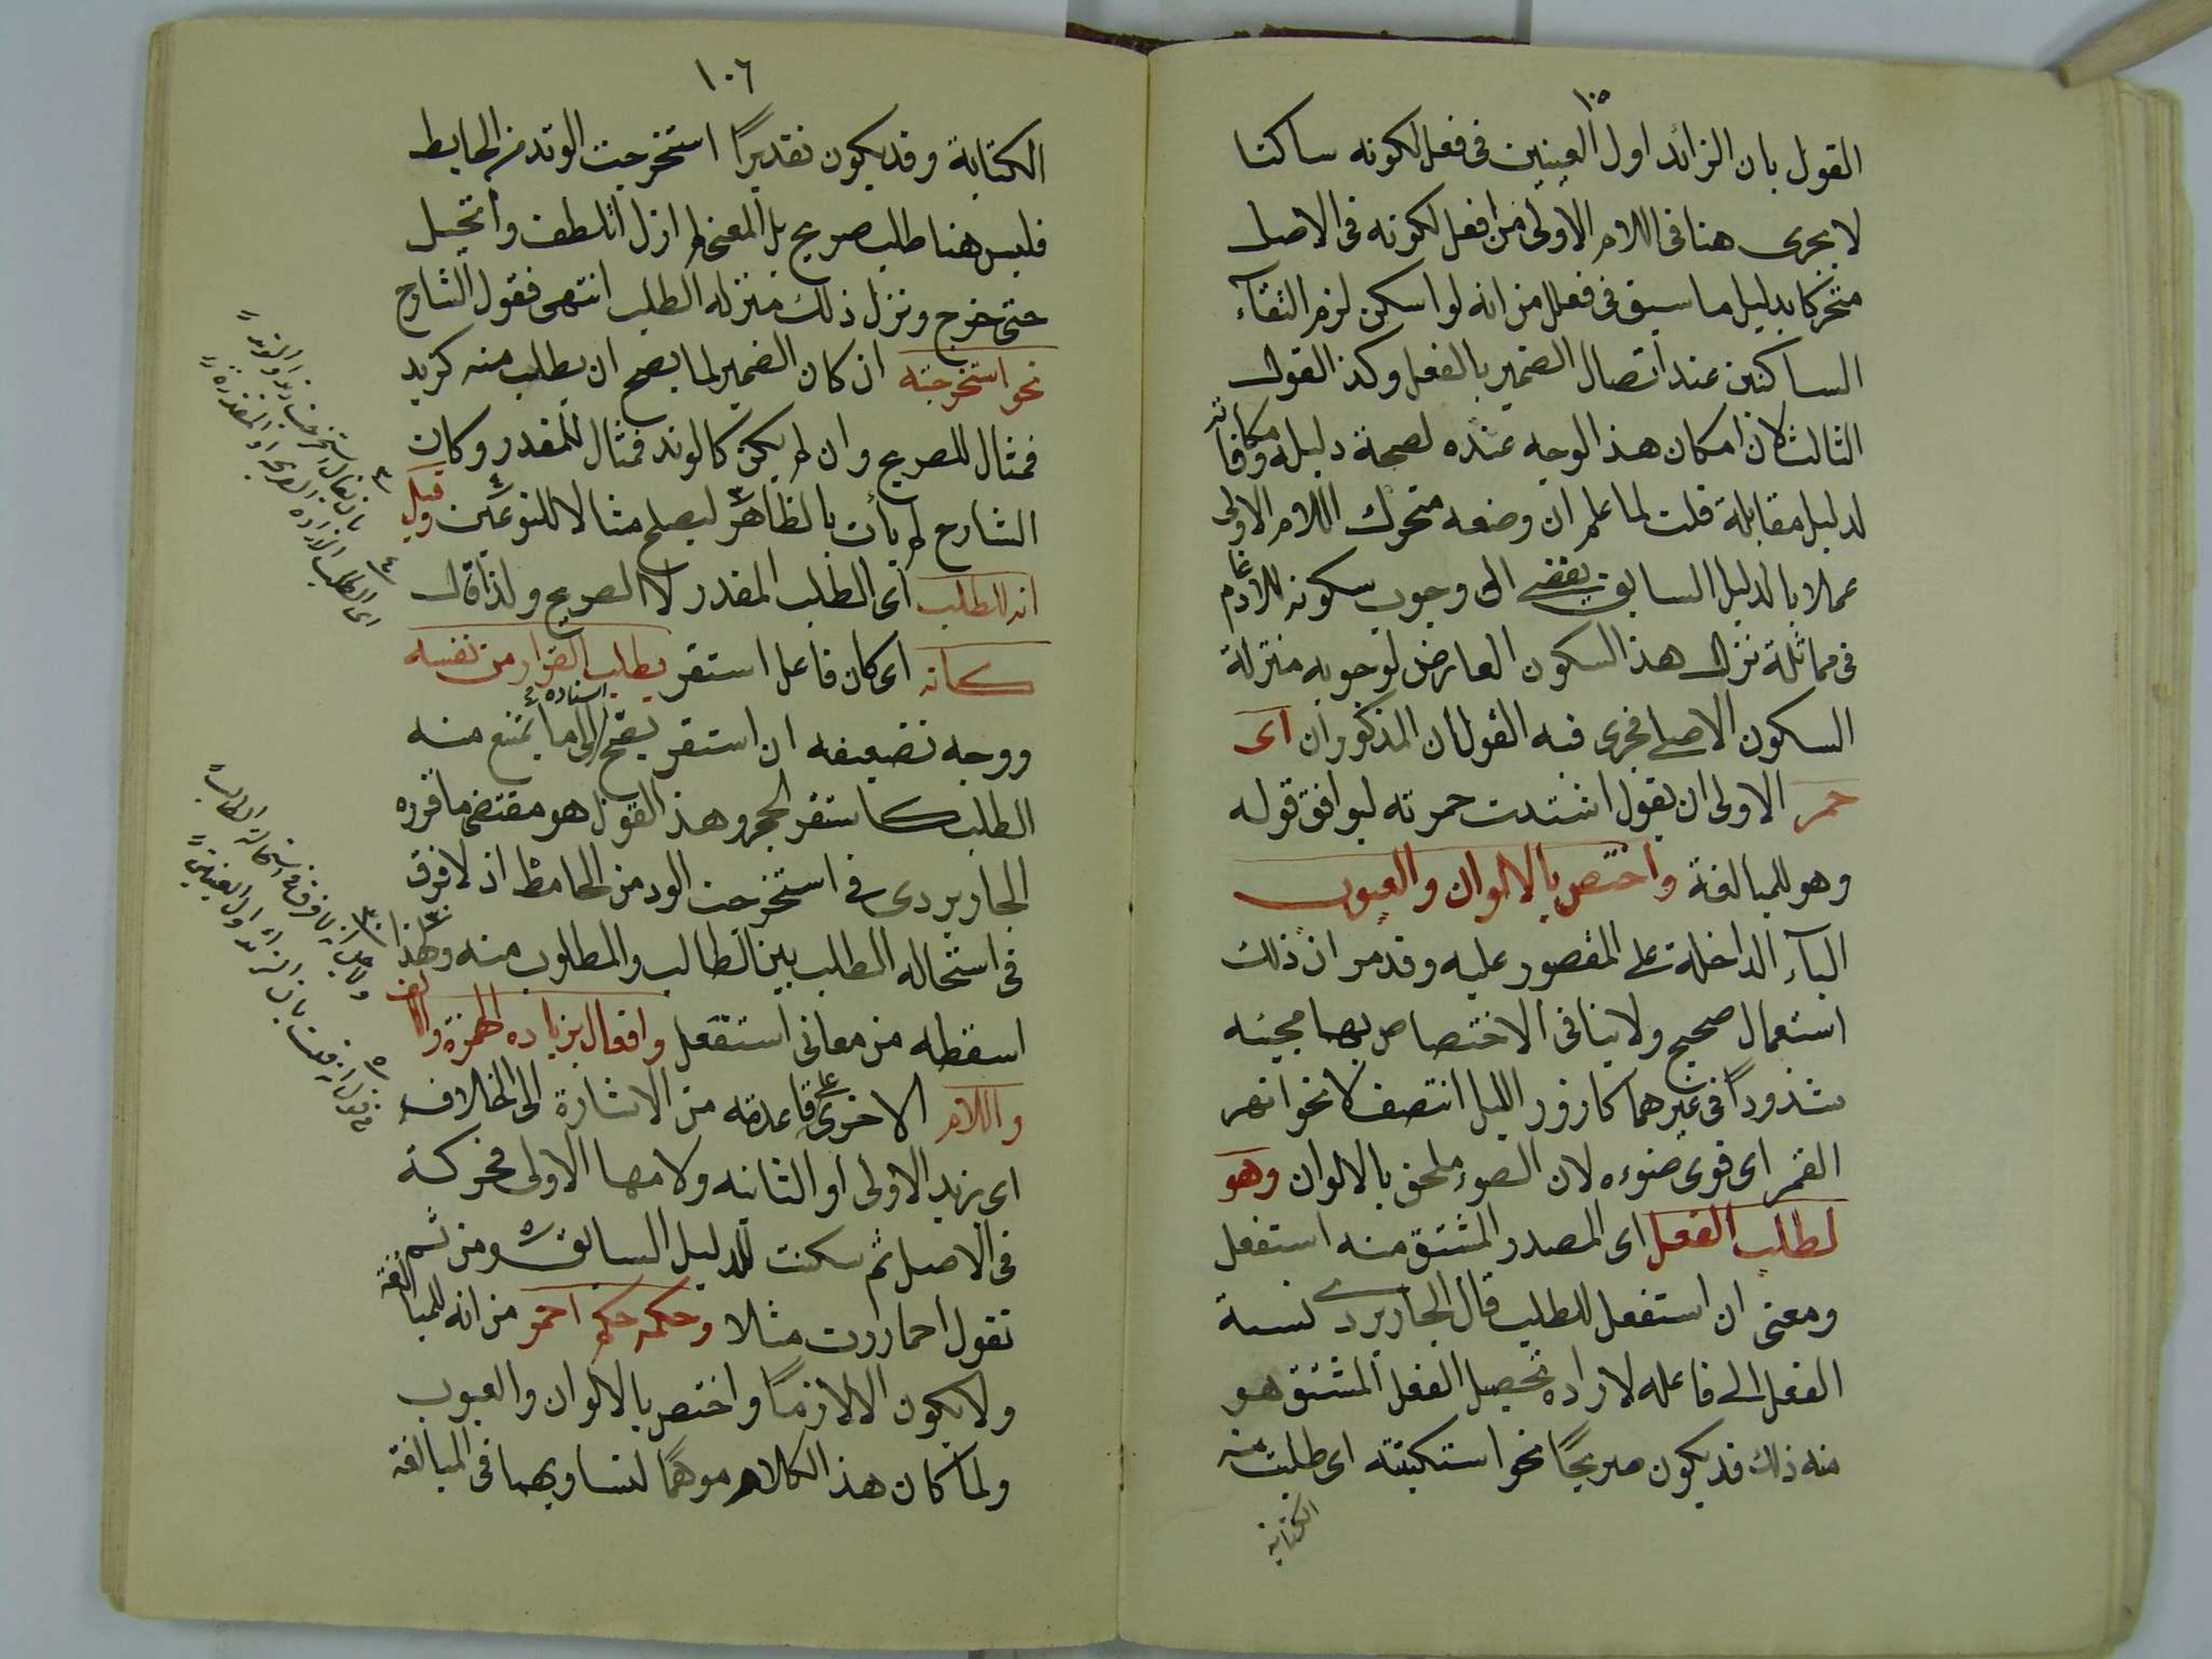 ١٠٥
القول بان الزائد اول العينين فى فعل لكونه ساكنا
لا يجرى هنا فى اللام الاولى من افعل لكونه فى الاصل
متحركا بدليل ما سيق فى فعلل من انه لو اسكن لزم التقآء
الساكنين عند اتصال الضمير بالفعل وكذ القول
الثالث لان امكان هذ الوجه عنده لصحة دليله ومكافاته
لدليل مقابلة قلت لما علم ان وضعه متحرك اللام الاولى
عملا بالدليل السابق يفضى الى وجوب سكونه للادغام
فى مماثلة نزل هذ السكون العارض لوجوبه منزلة
السكون الاصلى فجرى فيه القولان المذكوران اى
حمر الاولى ان يقول اشتدت حمرته ليوافق قوله
وهو للمبالغة واختص بالالوان والعيوب
البآء الداخلة على المقصور عليه وقد مر ان ذلك
استعمال صحيح ولا ينافى الاختصاص بهما مجيئه
شذوذاً فى غيرهما كازور الليل انتصف لا نحو انهر
القمر اى قوى ضوءه لان الضوء ملحق بالالوان وهو
لطلب الفعل اى المصدر المشتق منه استفعل
ومعنى ان استفعل للطلب قال الجاربردى نسبة
الفعل الى فاعله لاراده تحصيل الفعل المشتق هو
منه ذلك قد يكون صريحًا نحو استكتبته اى طلبت منه
الكتابة
١٠٦
الكتابة وقد يكون تقديرًا استخرجت الوتد من الحايط
فليس هنا طلب صريح بل المعنى لم ازل اتلطف واتحيل
حتى خرج ونزل ذلك منزله الطلب انتهى فقول الشارح
نحو استخرجته ان كان الضمير لما يصح ان يطلب منه كزيد
فمثال للصريح وان لم يكن كالوتد فمثال للمقدر وكان
الشارح لم يأت بالظاهر ليصلح مثالا للنوعين وقيل
انه للطلب اى الطلب المقدر لا الصريح ولذا قال
كانه اى كان فاعل استقر يطلب القرار من نفسه
ووجه تضعيفه ان استقر يصح اسناده الى ما يمتنع منه
الطلب كاستقر الحجر وهذ القول هو مقتضى ما قرره
الجاربردى فى استخرجت الوتد من الحائط اذ لا فرق
فى استحاله الطلب بين الطالب والمطلوب منه ولهذا
اسقطه من معانى استفعل وافعال بزياده الهمزة والالف
واللام الاخرى على قاعدته من الاشارة الى الخلاف
اى يزيد الاولى او الثانيه ولامها الاولى محركة
فى الاصل ثم سكنت للدليل السابق ومن ثم
تقول احماررت مثلا وحكمه حكم احمر من انه للمبالغة
ولا يكون الا لازمًا واختص بالالوان والعيوب
ولما كان هذ الكلام موهمًا لتساويهما فى المبالغة